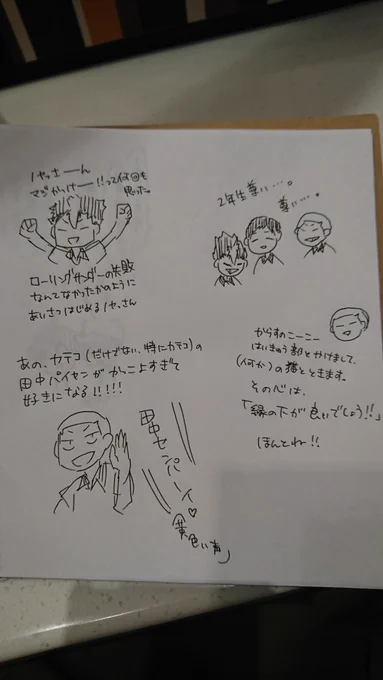 ノヤっさーん
マジかっけー!!って何回も
思った。
ローリングサンダーの失敗
なんてなかったかのように
あいさつはじめるノヤっさん
2年生尊い…。
尊い…。
あの、カテコ(だけでない、特にカテコ)の
田中パイセンがかっこよすぎて
好きになる!!!!!
田中センパーイ♡
(黄色い声)
からすのニーニー
はいきゅう部とかけまして、
(何か)の
とときます。
その心は、
「縁の下が良いでしょう!!」
ほんとね!!